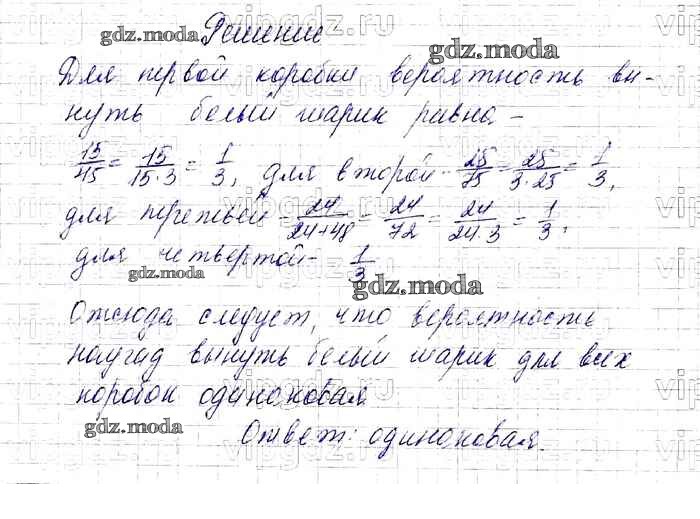 Решение
Для первой коробки вероятность вы-
нуть белый шарик равна -
15/45 = 15/15·3 = 1/3, для второй - 25/75 = 25/3·25 = 1/3,
для третьей - 24/24+48 = 24/72 = 24/24·3 = 1/3,
для четвертой - 1/3
Отсюда следует, что вероятность
наугад вынуть белый шарик для всех
коробок одинаковая
Ответ: одинаковая.
gdz.moda
gdz.moda
gdz.moda
gdz.moda
gdz.moda
vipgdz.ru